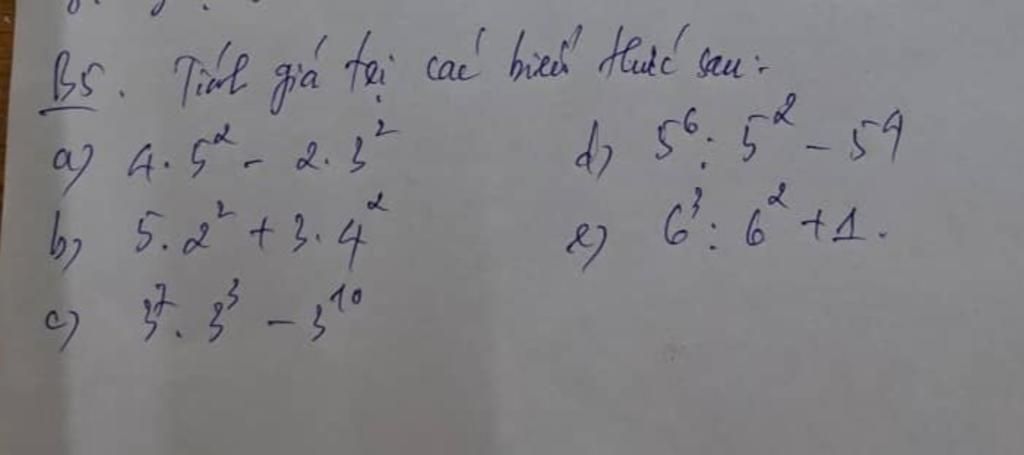 B5. Tính giá trị các biểu thức sau:
a) 4 . 5² - 2 . 3²
b) 5 . 2² + 3 . 4²
c) 3⁷ . 3³ - 3¹⁰
d) 5⁶ : 5² - 5⁴
e) 6³ : 6² + 1.